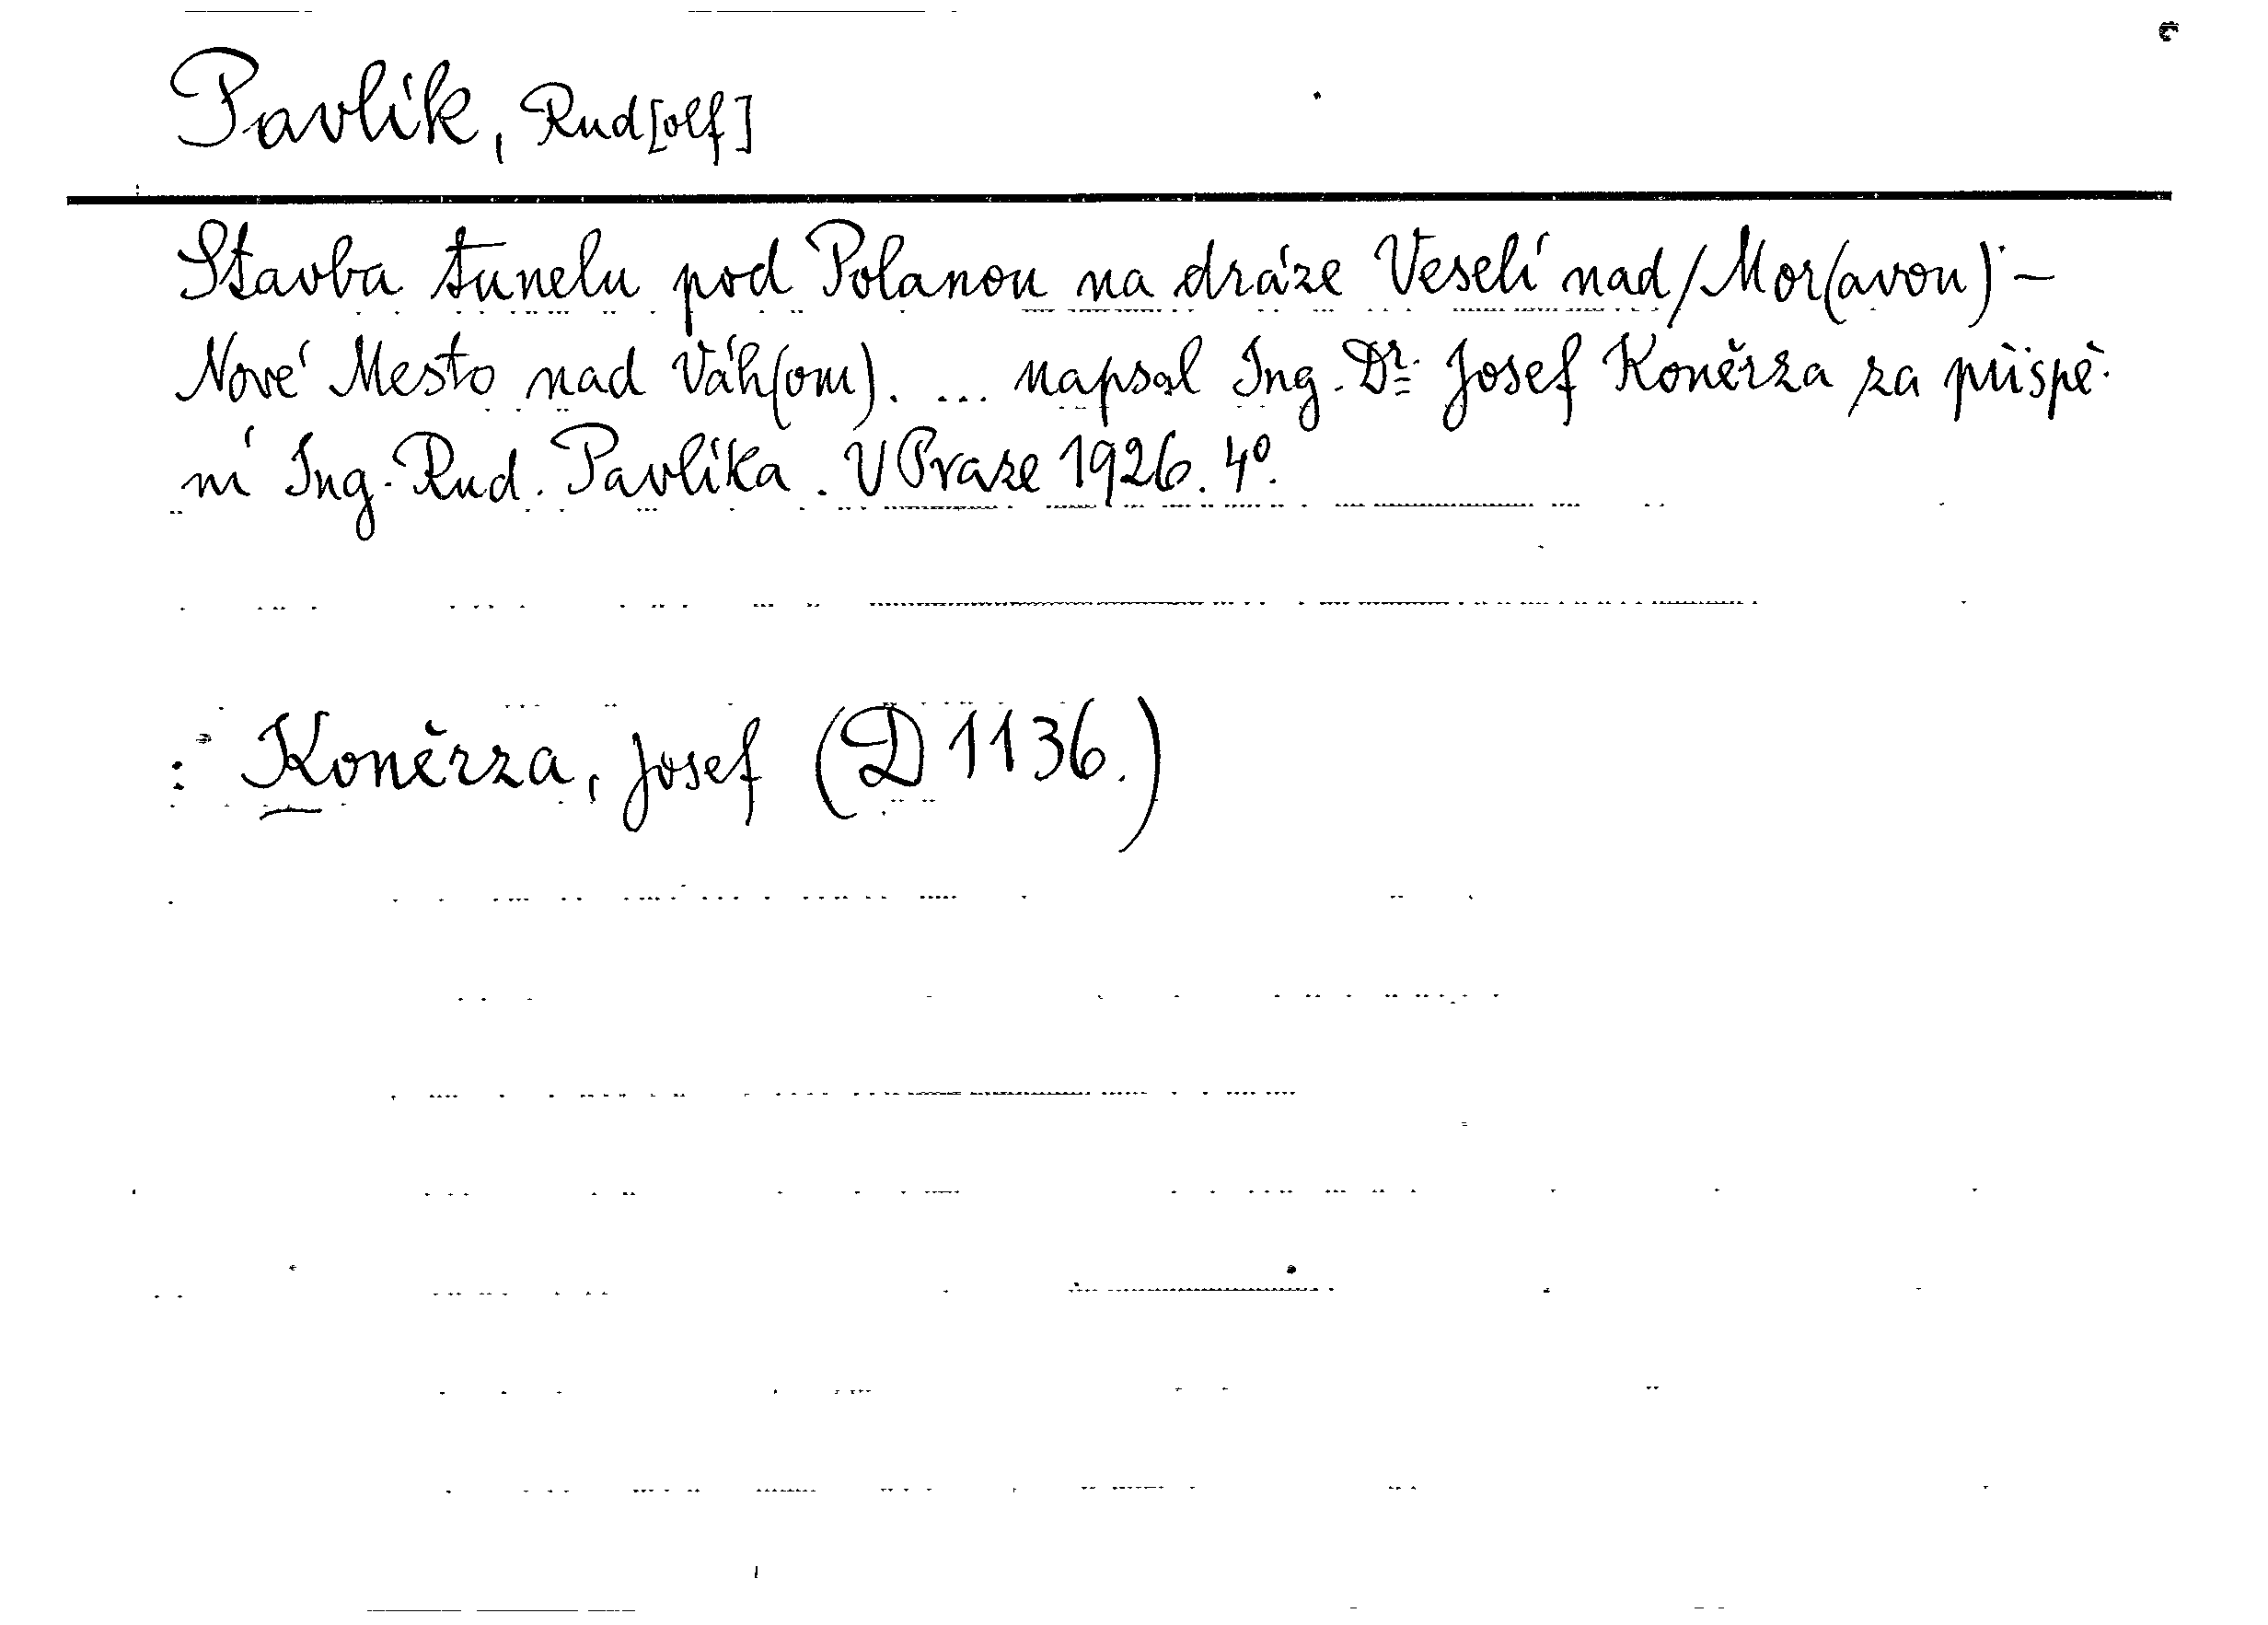 Pavlík, Rud[olf]
Stavba tunelu pod Polanou na dráze Veselí nad/Mor(avou) –
Nové Mesto nad Váh(om). ... napsal Ing. Dr. Josef Koněrza za přispě-
ní Ing. Rud. Pavlíka. V Praze 1926. 4º.
: Koněrza, Josef (D 1136.)